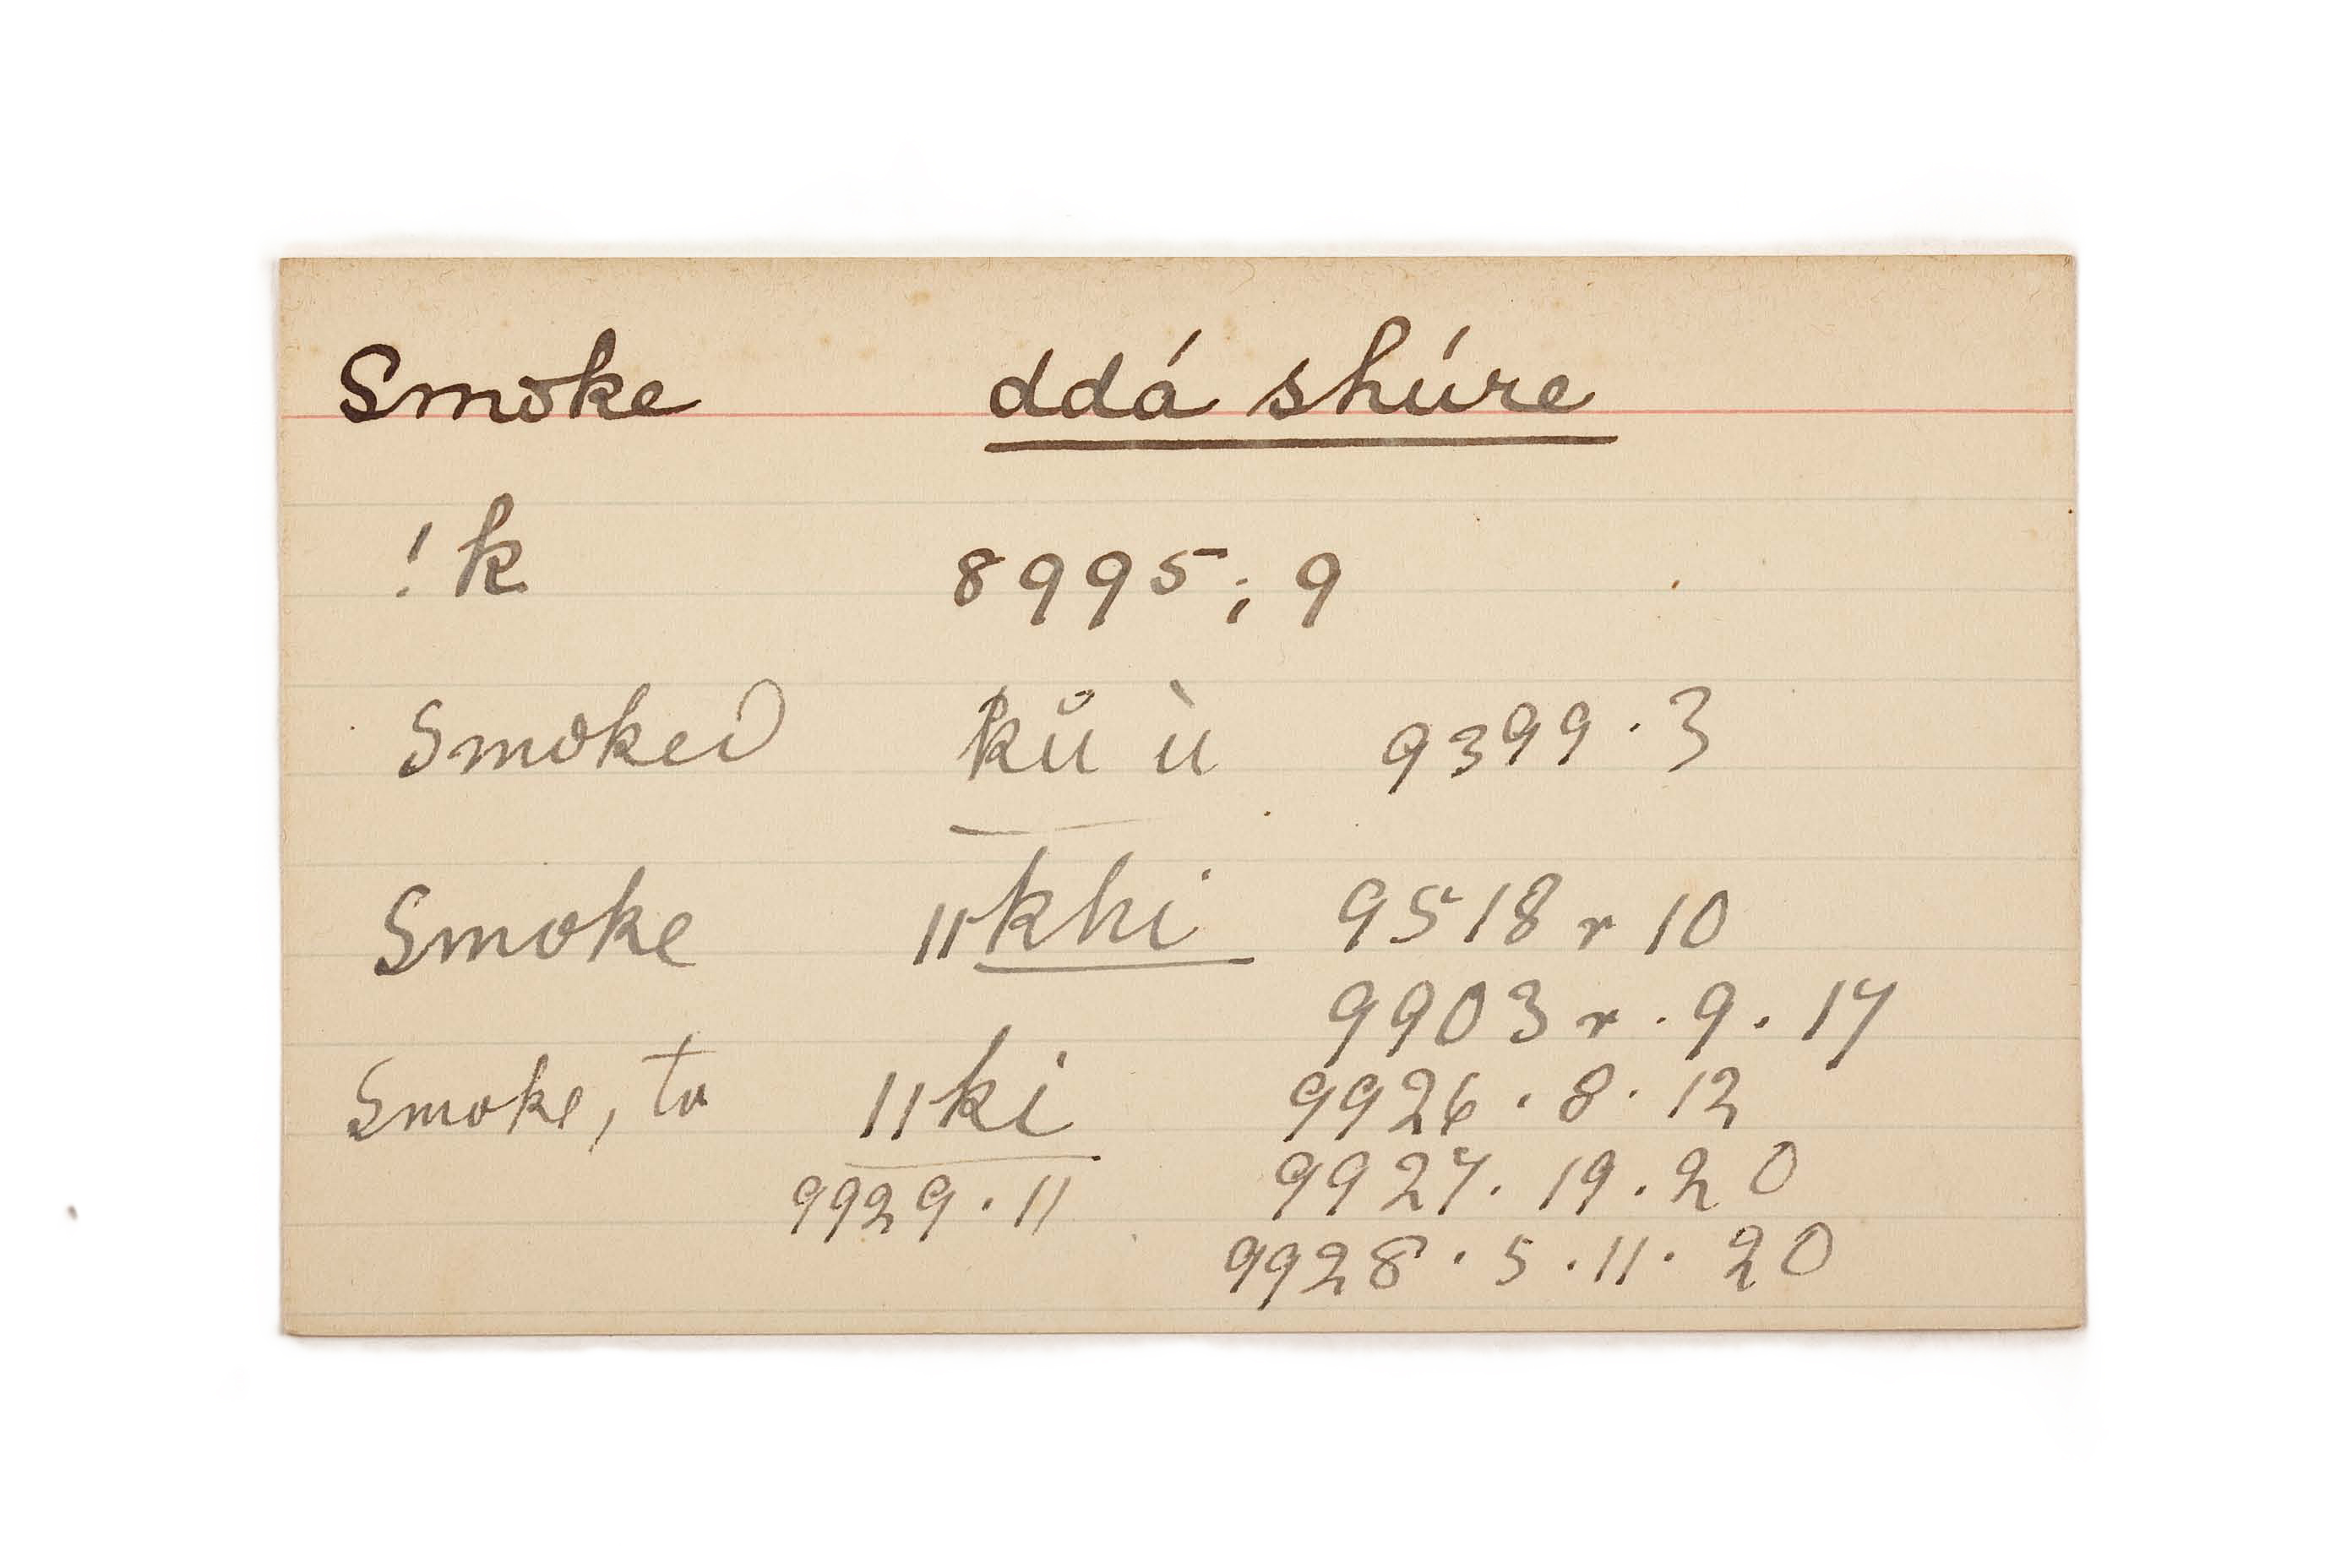 Smoke ddá shúre
!k 8995; 9
Smoked kŭ ù 9399 . 3
Smoke ||khi 9518 r 10
9903 r . 9 . 17
Smoke, to ||ki 9926 . 8 . 12
9927 . 19 . 20
9929 . 11
9928 . 5 . 11 . 20